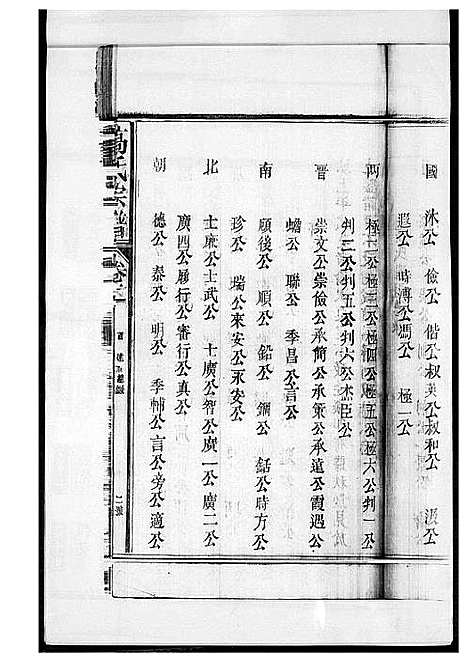 國　沐公　儉公　偕公叔英公叔和公　汲公
遐公　時溥公馮公　極一公
西　極二公極三公極四公極五公極六公判一公
判二公判五公判六公杰臣公
晋　崇文公崇儉公承簡公承策公承遠公霞遇公
蟾公　聯公　季昌公言公
南　顧後公　順公　鉛公　鐧公　銛公時方公
珍公　瑞公來安公永安公
北　士廉公士武公　士廣公智公廣一公廣二公
廣四公履行公審行公真公
朝　德公　泰公　明公　季輔公言公旁公適公
氏宗譜
二號